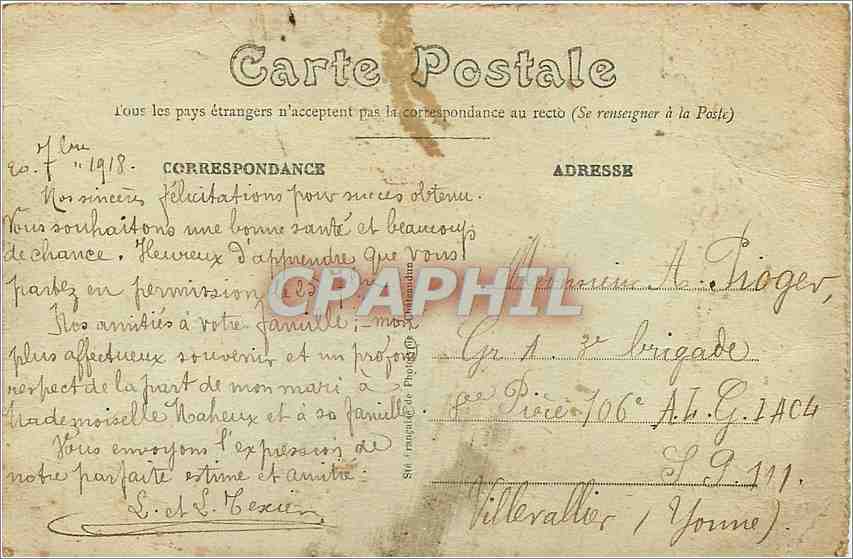 Carte Postale
Tous les pays étrangers n'acceptent pas la correspondance au recto (Se renseigner à la Poste)
20. 7bre 1918.
CORRESPONDANCE
Nos sincères félicitations pour succès obtenu.
Vous souhaitons une bonne santé et beaucoup
de chance. Heureux d'apprendre que vous
partez en permission le 25
Nos amitiés à votre famille ; mon
plus affectueux souvenir et un profond
respect de la part de mon mari à
Mademoiselle Maheux et à sa famille.
Vous envoyons l'expression de
notre parfaite estime et amitié.
L. et L. Texier
Sté Française de Photo
Châteaudun
ADRESSE
Monsieur A. Pioger,
Gr 1. 3e brigade
Pièce 106e A.L.G.
S P. 111.
Villevallier (Yonne).
CPAPHIL